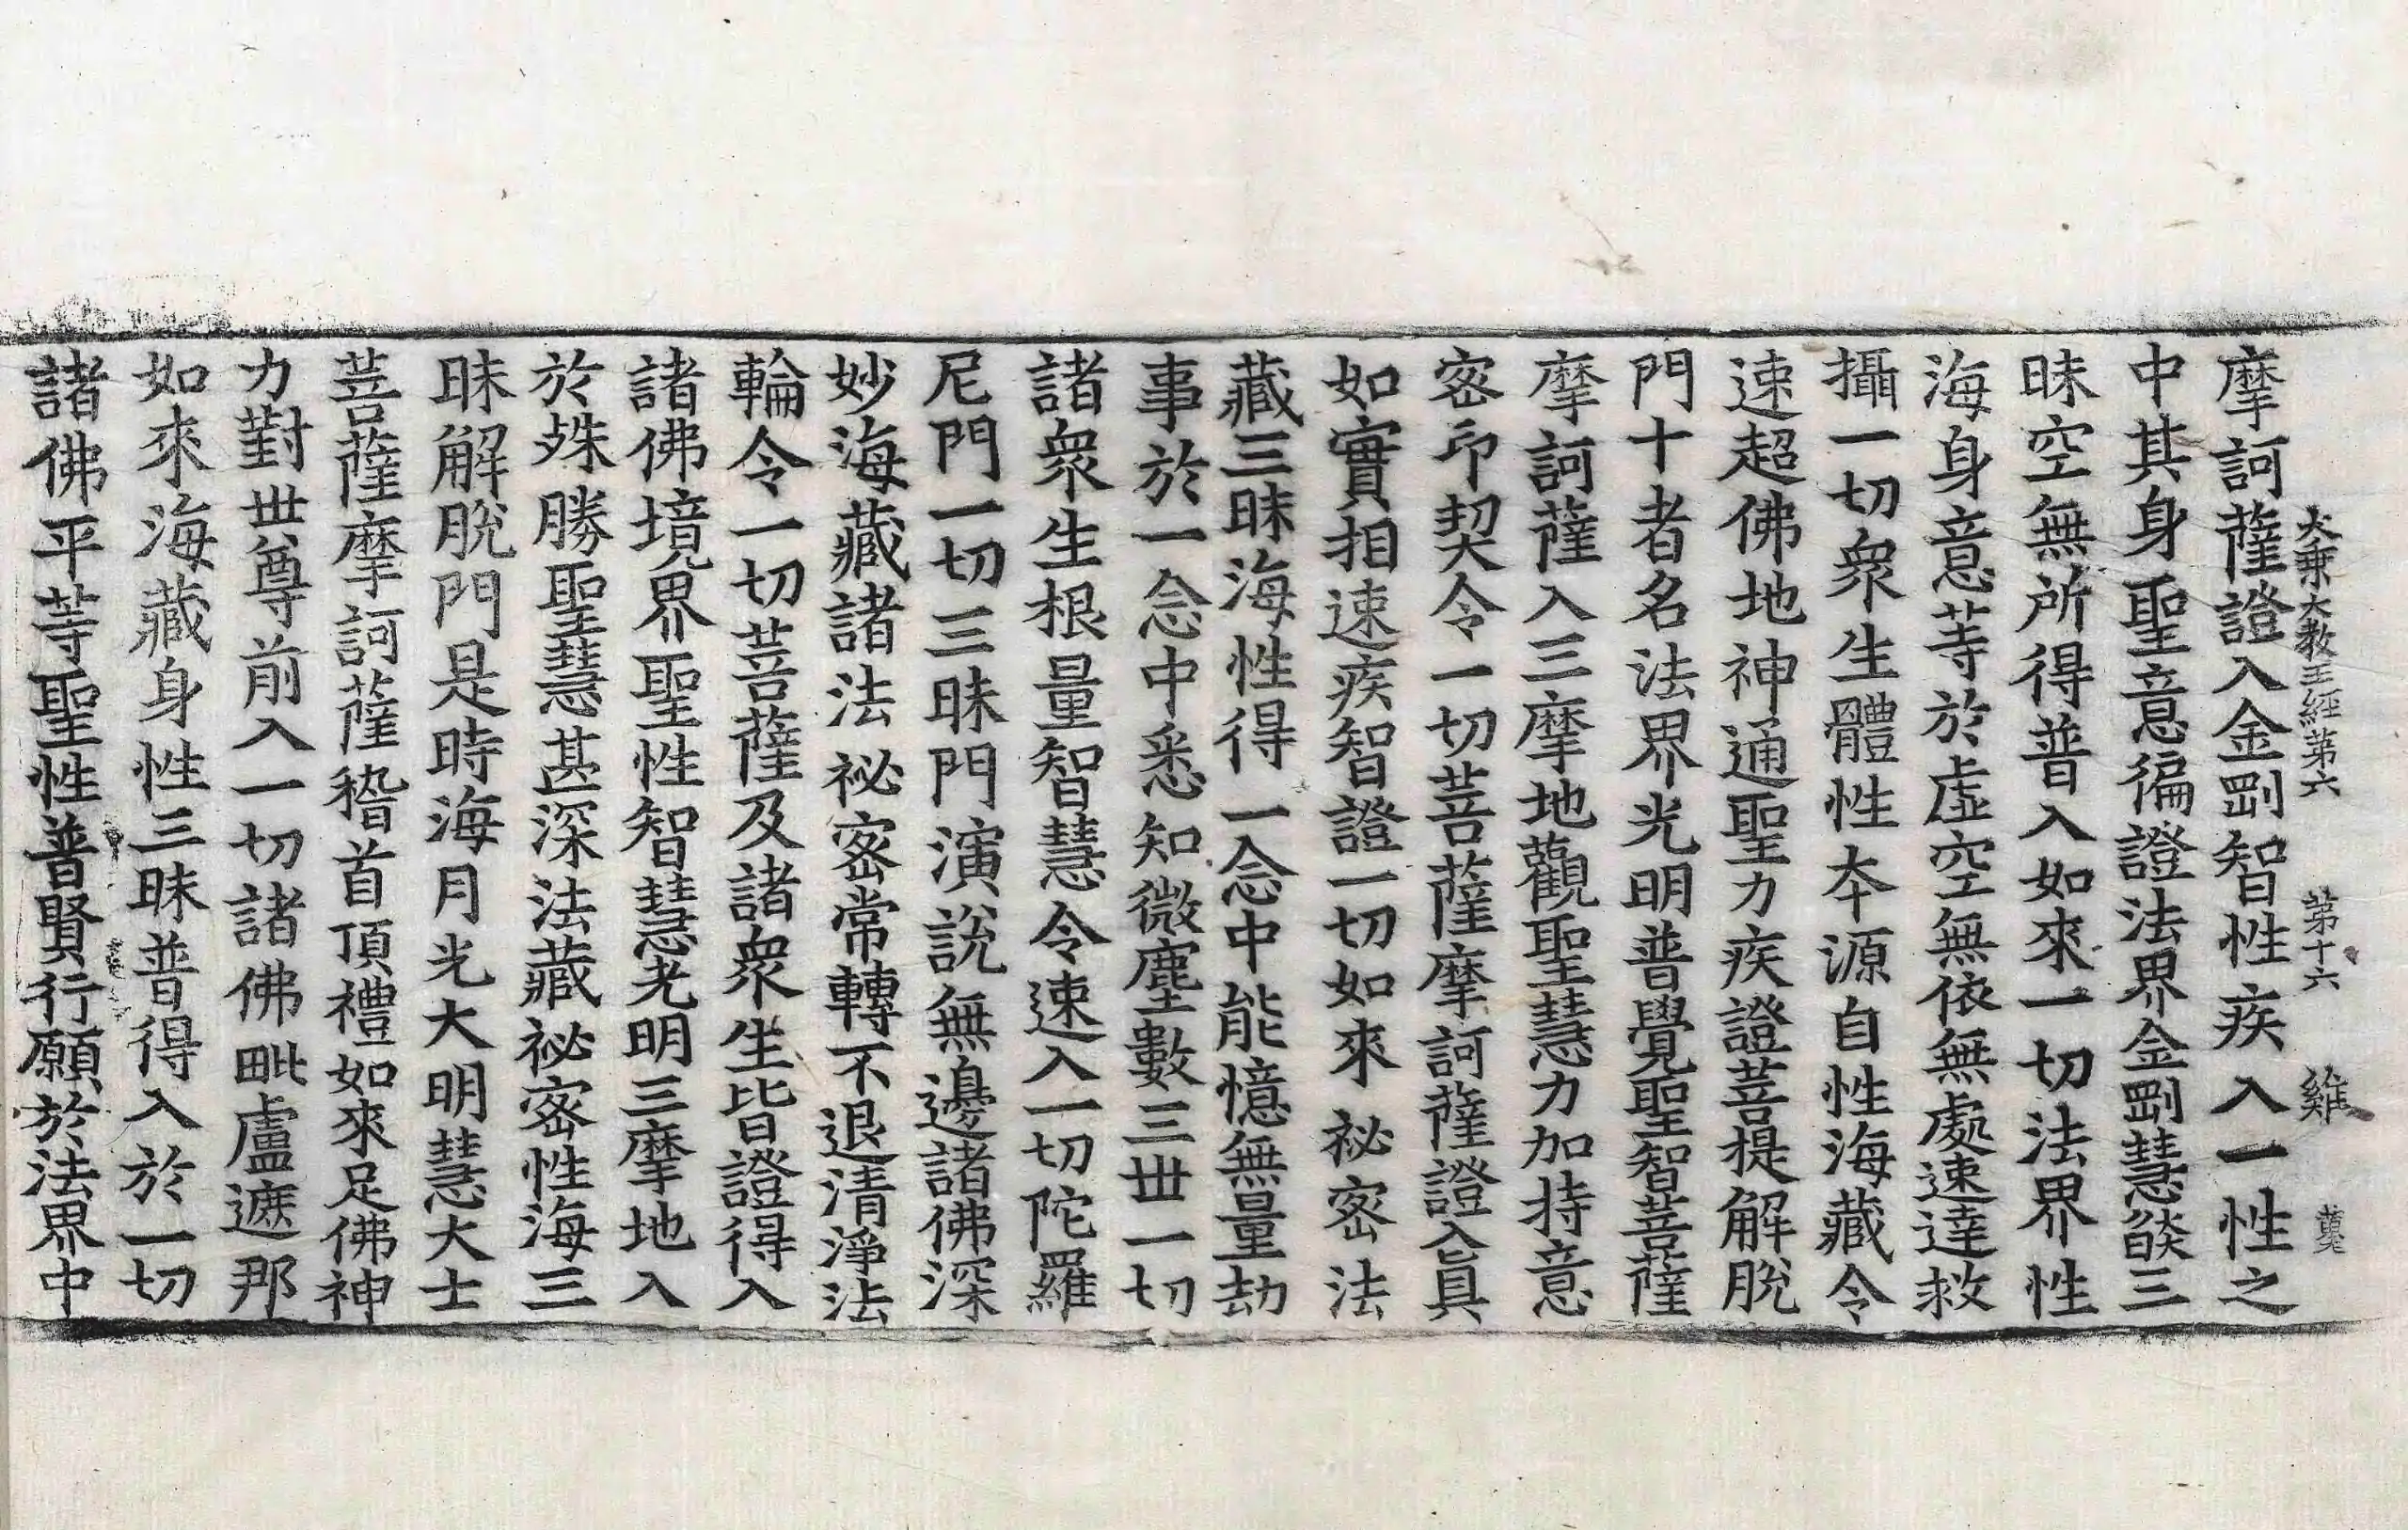 大乗大教王經第六 第十六 維
摩訶薩證入金剛智性疾入一性之
中其身聖意徧證法界金剛慧燄三
昧空無所得普入如來一切法界性
海身意䓁於虛空無依無處速達救
攝一切衆生體性夲源自性海藏令
速超佛地神通聖力疾證菩提解脫
門十者名法界光明普覺聖智菩薩
摩訶薩入三摩地觀聖慧力加持意
宻印契令一切菩薩摩訶薩證入眞
如實相速疾智證一切如來祕宻法
藏三昧海性得一念中能憶無量劫
事於一念中悉知微塵數三丗一切
諸衆生根量智慧令速入一切陀羅
尼門一切三昧門演說無邊諸佛深
妙海藏諸法祕宻常轉不退清淨法
輪令一切菩薩及諸衆生皆證得入
諸佛境界聖性智慧光明三摩地入
於殊勝聖慧甚深法藏祕宻性海三
昧解脫門是時海月光大明慧大士
菩薩摩訶薩稽首頂禮如來足佛神
力對丗尊前入一切諸佛毗盧遮那
如來海藏身性三昧普得入於一切
諸佛平䓁聖性普賢行願於法界中